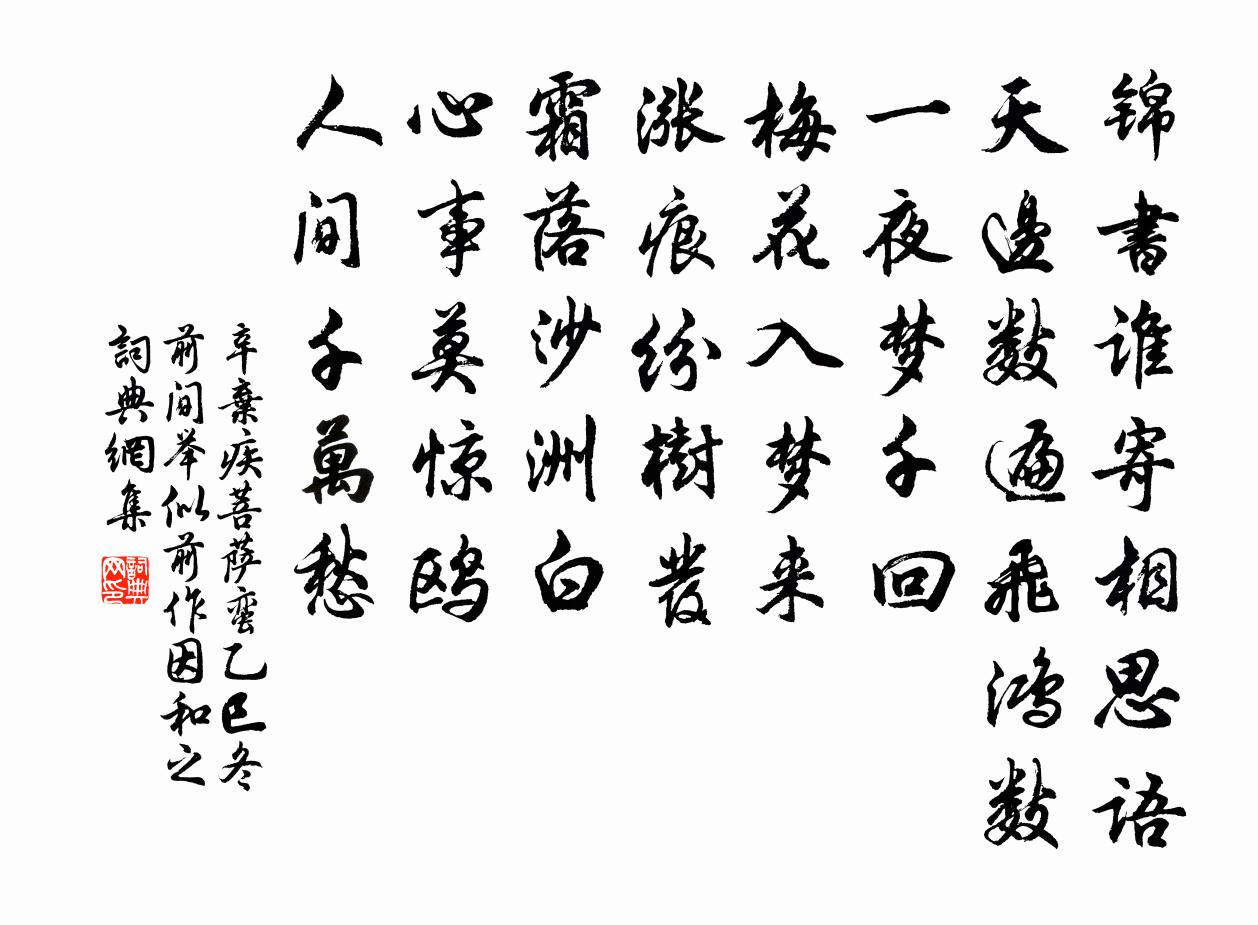 锦書谁寄相思语
天邊數遍飛鸿數
一夜梦千回
梅花入梦来
涨痕纷樹發
霜落沙洲白
心事莫惊鸥
人间千萬愁
辛棄疾菩萨蛮乙巳冬
前间举似前作因和之
詞典網集
詞典网印